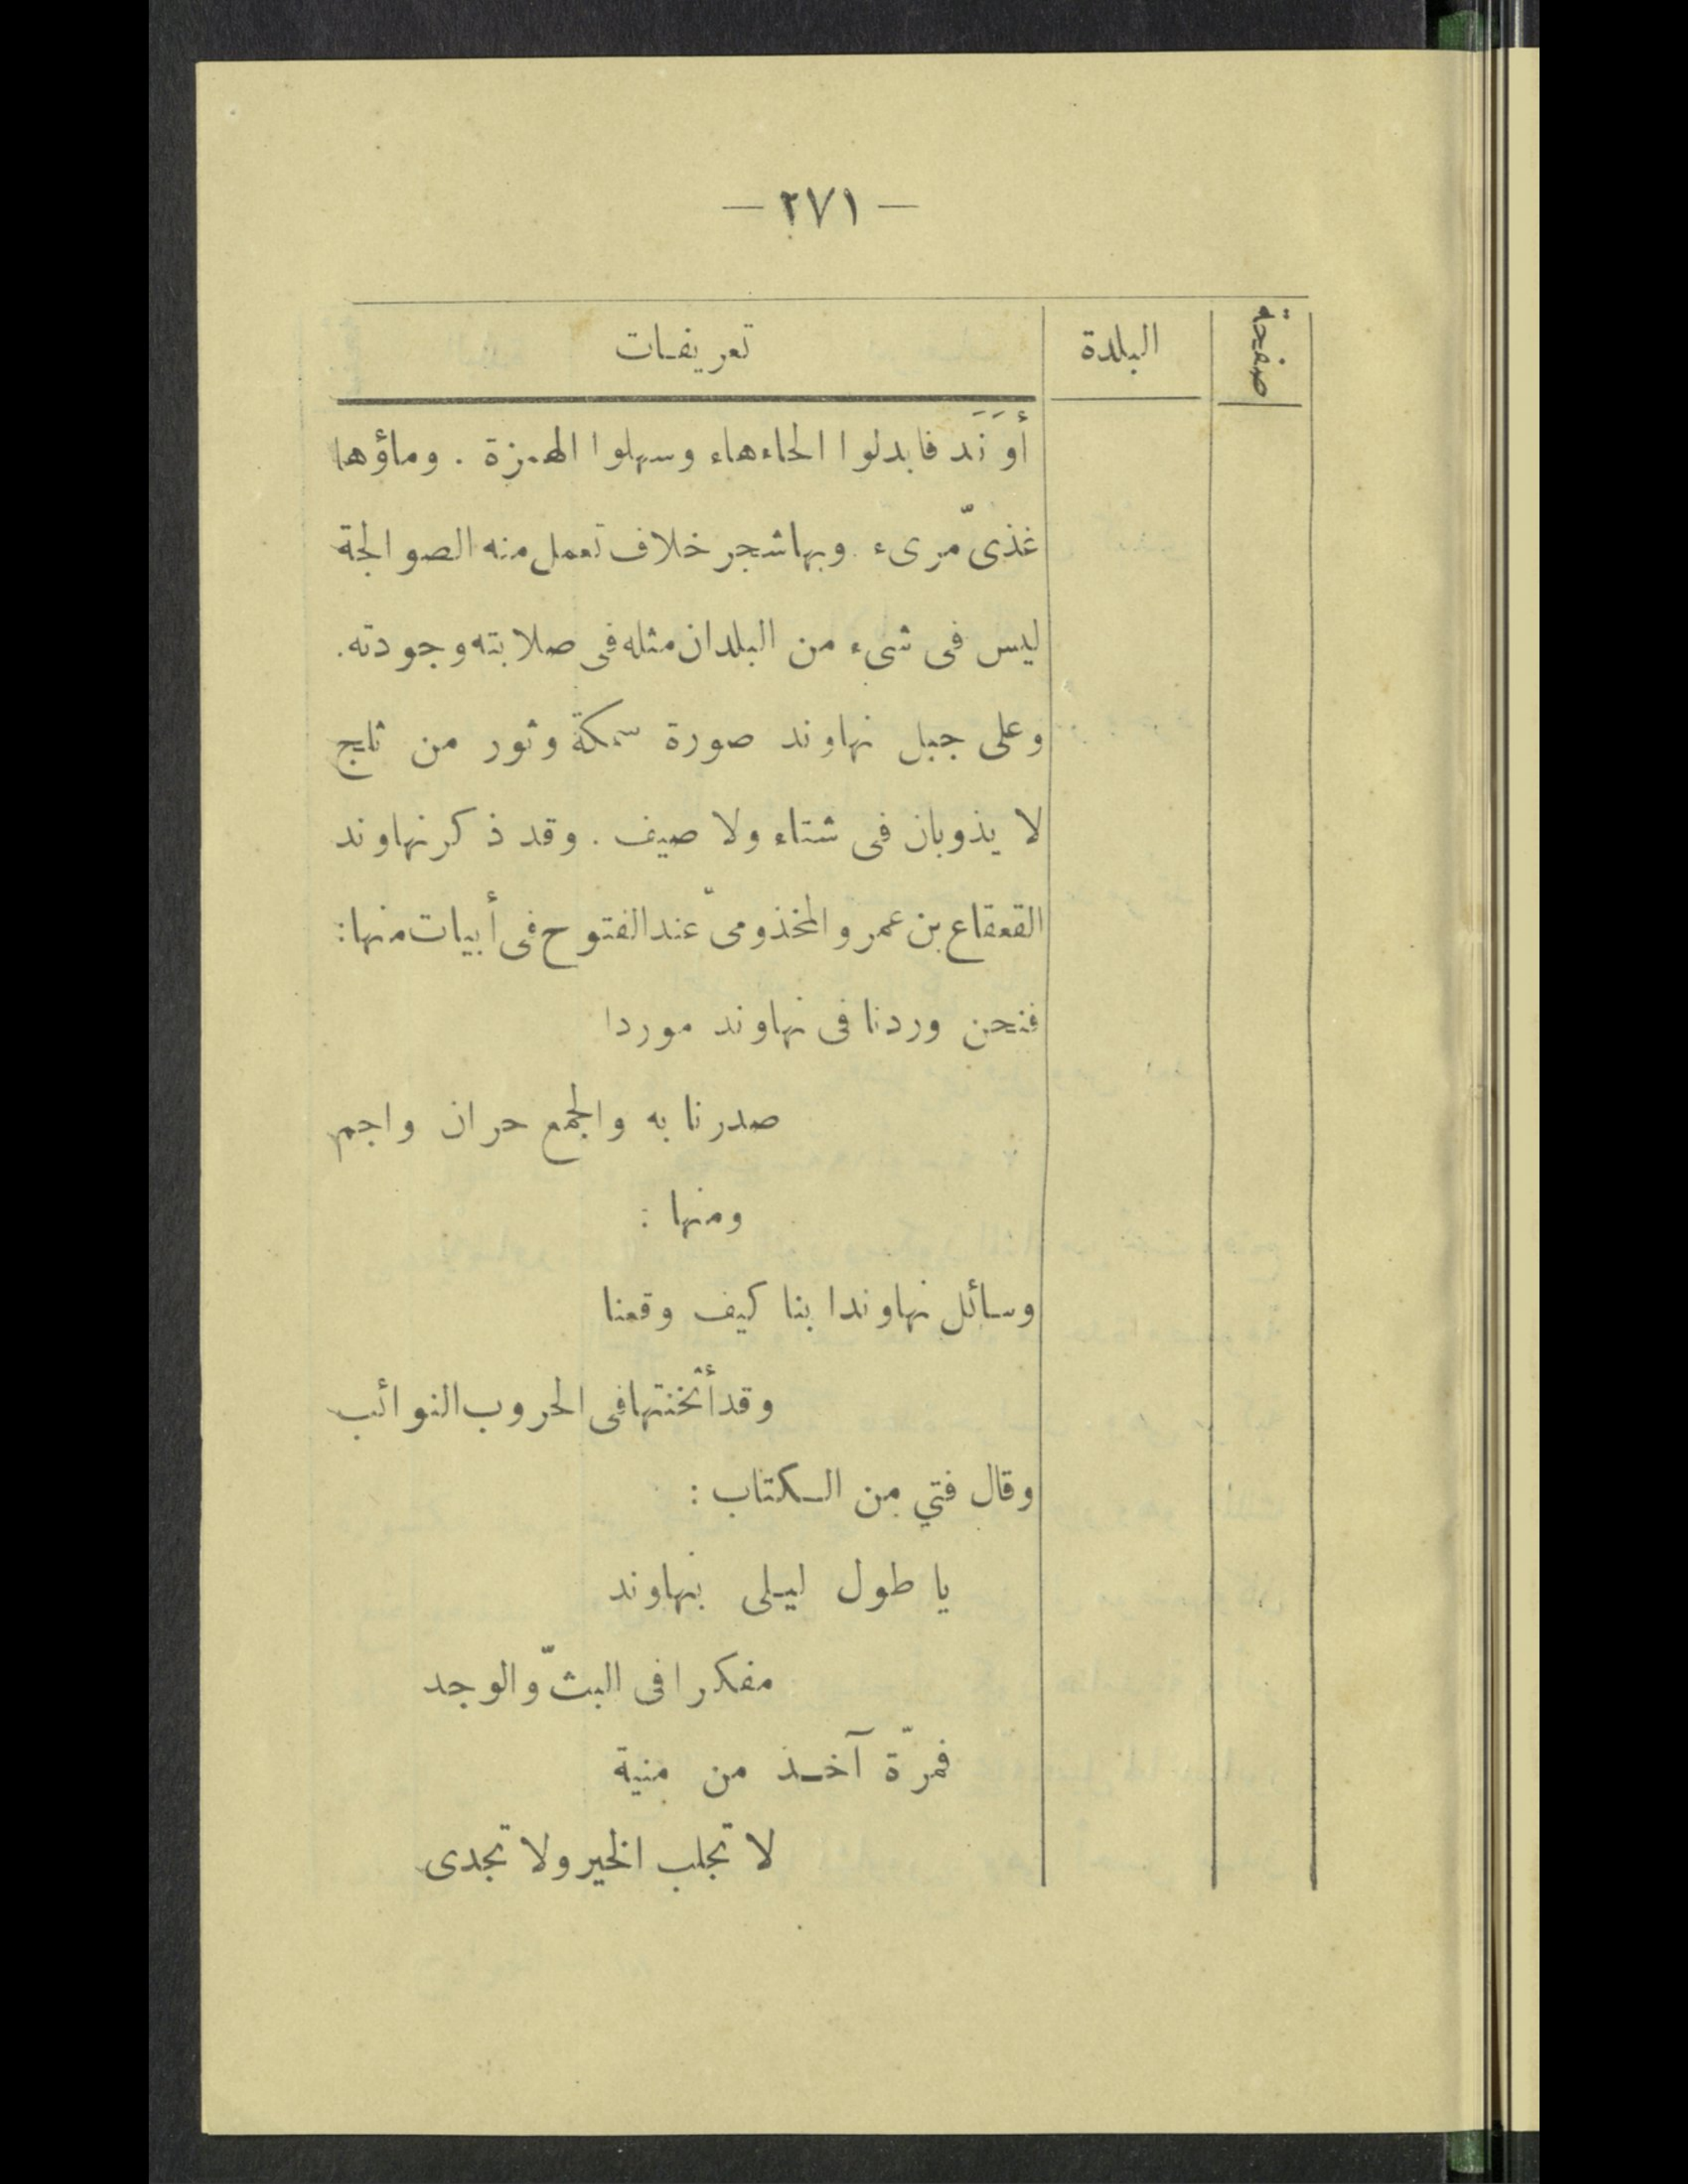 — ٢٧١ —
صفحة البلدة تعريفات
أَوَنْد فابدلوا الحاء هاء وسهلوا الهمزة . وماؤها
غذىّ مرىء وبها شجر خلاف تعمل منه الصوالجة
ليس فى شىء من البلدان مثله فى صلابته وجودته .
وعلى جبل نهاوند صورة سمكة وثور من ثلج
لا يذوبان فى شتاء ولا صيف . وقد ذكر نهاوند
القعقاع بن عمرو المخذومىّ عند الفتوح فى أبيات منها :
فنحن وردنا فى نهاوند موردا
صدرنا به والجمع حران واجم
ومنها :
وسائل نهاوندا بنا كيف وقعنا
وقد أثخنتها فى الحروب النوائب
وقال فتي من الكتاب :
يا طول ليلى بنهاوند
مفكرا فى البثّ والوجد
فمرّة آخذ من منية
لا تجلب الخير ولا تجدى